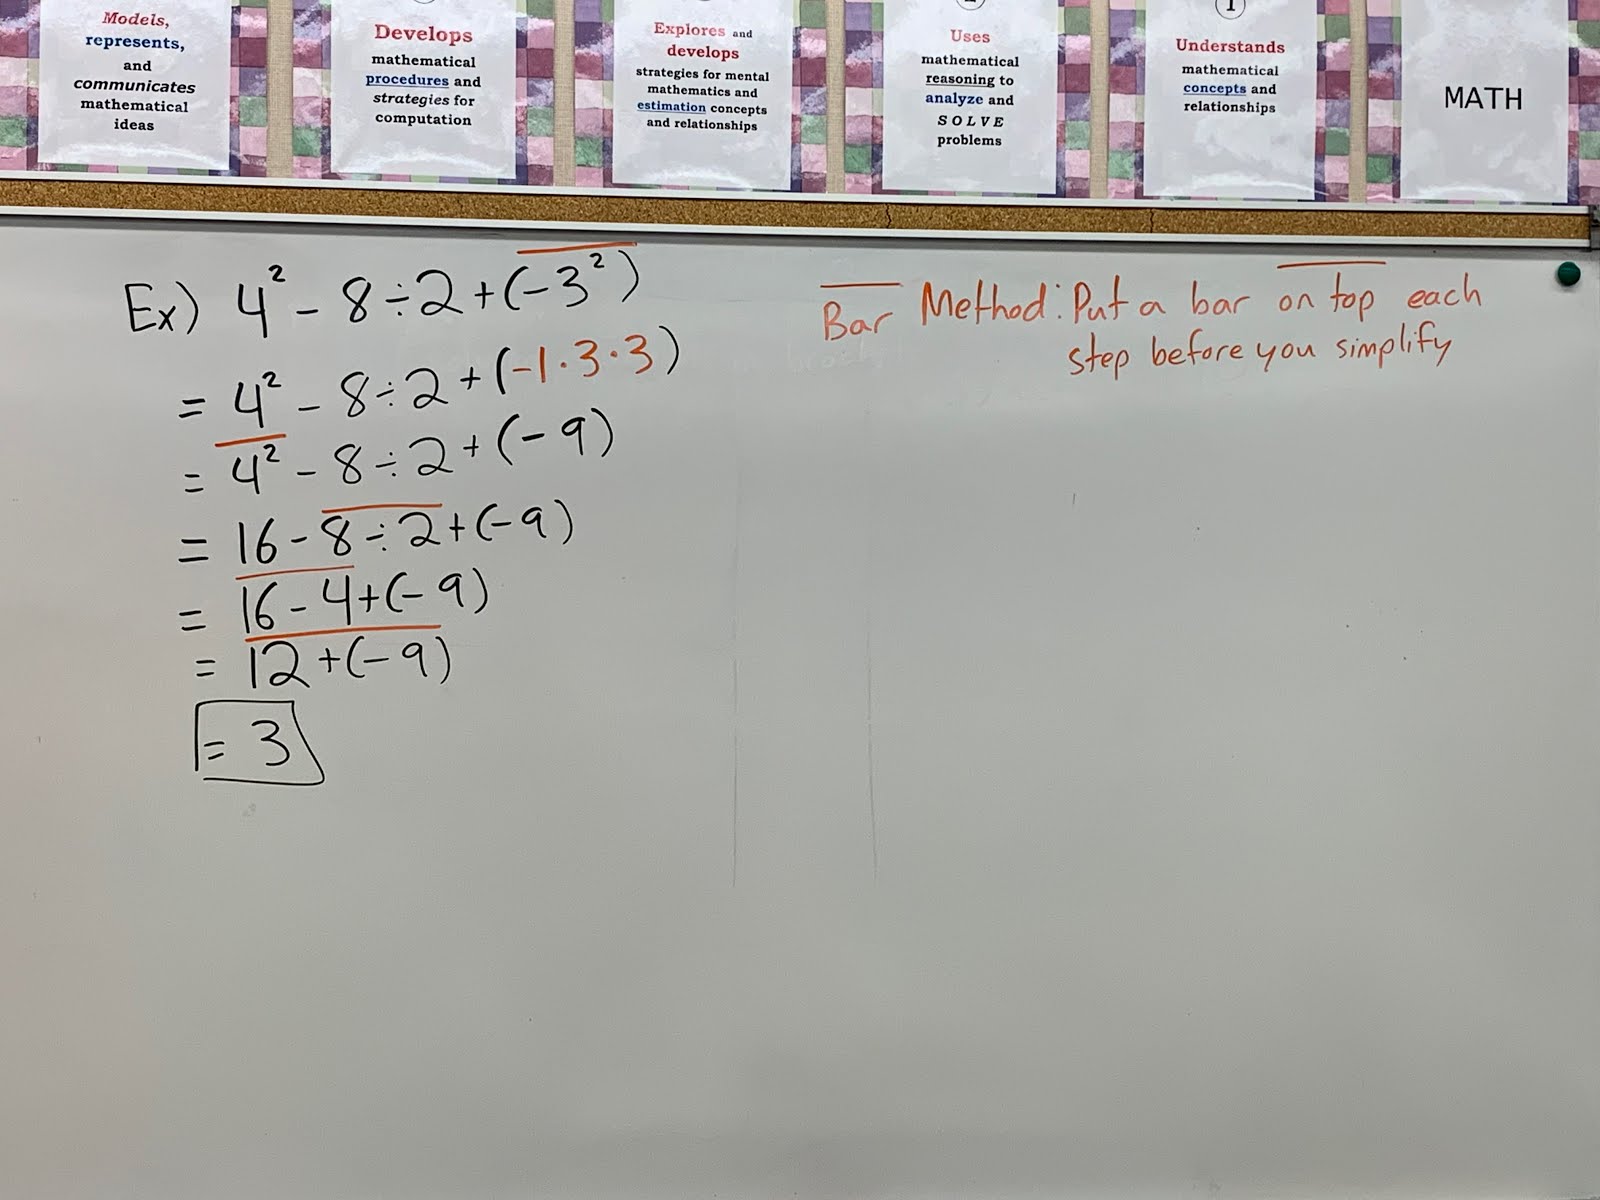 Models,
represents,
and
communicates
mathematical
ideas
Develops
mathematical
procedures and
strategies for
computation
Explores and
develops
strategies for mental
mathematics and
estimation concepts
and relationships
Uses
mathematical
reasoning to
analyze and
SOLVE
problems
1
Understands
mathematical
concepts and
relationships
MATH
Ex) 4² - 8 ÷ 2 + (-3²)
= 4² - 8 ÷ 2 + (-1·3·3)
= 4² - 8 ÷ 2 + (-9)
= 16 - 8 ÷ 2 + (-9)
= 16 - 4 + (-9)
= 12 + (-9)
= 3
Bar Method: Put a bar on top each
step before you simplify